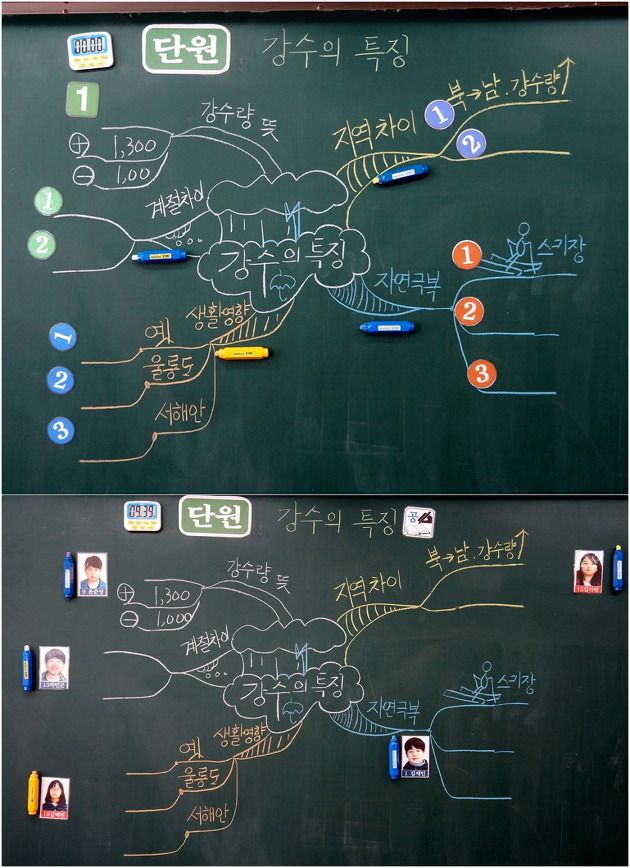 00:00
단원
강수의 특징
1
강수량 뜻
+ 1,300
- 1,00
지역차이
1
북→남.강수량↑
2
계절차이
1
2
강수의 특징
자연극복
1
스키장
2
3
생활영향
1
옛
2
울릉도
3
서해안
09:39
단원
강수의 특징
공
강수량 뜻
+ 1,300
- 1,000
지역차이
북→남.강수량↑
계절차이
강수의 특징
자연극복
스키장
생활영향
옛
울릉도
서해안